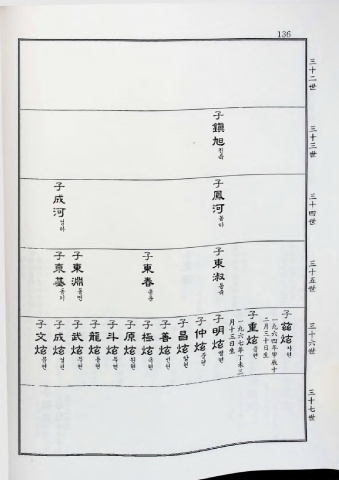 136
三十二世
三十三世
子鎭旭 진욱
三十四世
子鳳河 봉하
子成河 성하
三十五世
子東淑 동숙
子東春 동춘
子東淵 동연
子東基 동기
三十六世
子 炫 자현
一九六四年甲辰十
二月三十日生
子重炫 중현
一九六七年丁未三
月十三日生
子明炫 명현
子仲炫 중현
子昌炫 창현
子善炫 선현
子極炫 극현
子原炫 원현
子斗炫 두현
子龍炫 용현
子武炫 무현
子成炫 성현
子文炫 문현
三十七世